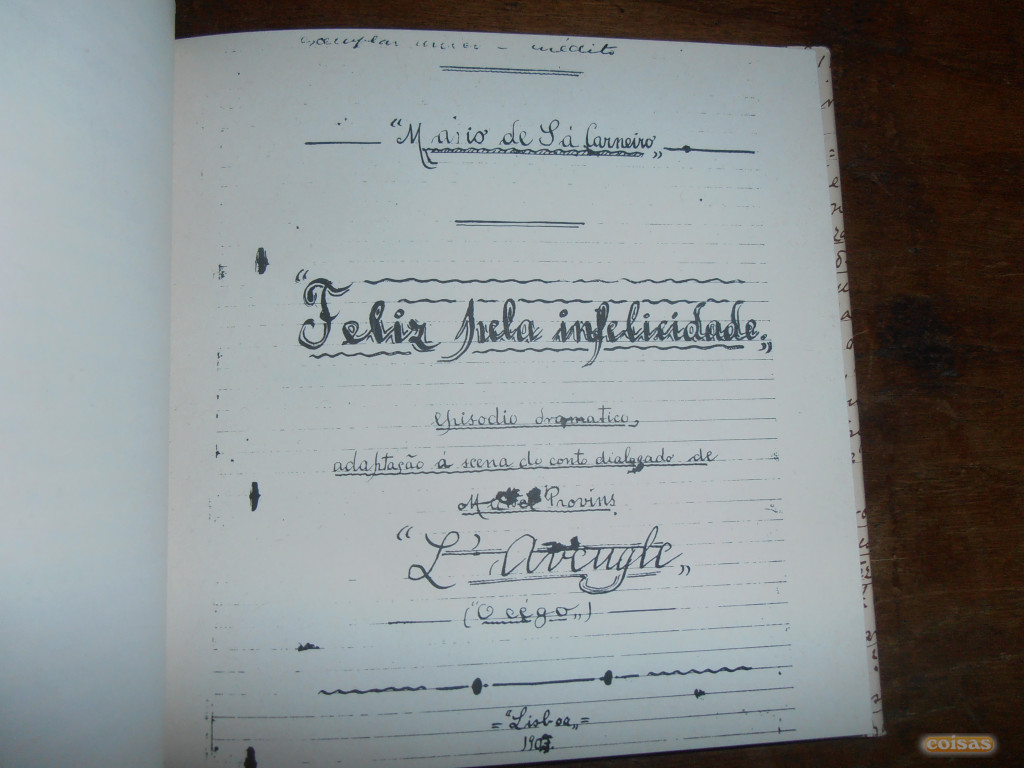 exemplar unico - inédito
"Mario de Sá Carneiro„
"Feliz pela infelicidade„
episodio dramatico,
adaptação á scena do conto dialogado de
Provins.
"L'Aveugle„
("O cégo„)
="Lisboa„=
coisas